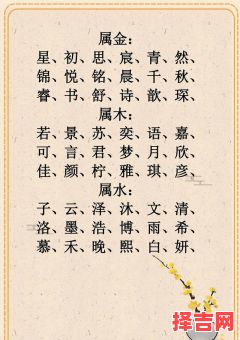 属金：
星、初、思、宸、青、然、
锦、悦、铭、晨、千、秋、
睿、书、舒、诗、歆、琛、
属木：
若、景、苏、奕、语、嘉、
可、言、君、梦、月、欣、
佳、颜、柠、雅、琪、彦、
属水：
子、云、泽、沐、文、清、
洛、墨、浩、博、雨、希、
慕、禾、晚、熙、白、妍、
择吉网